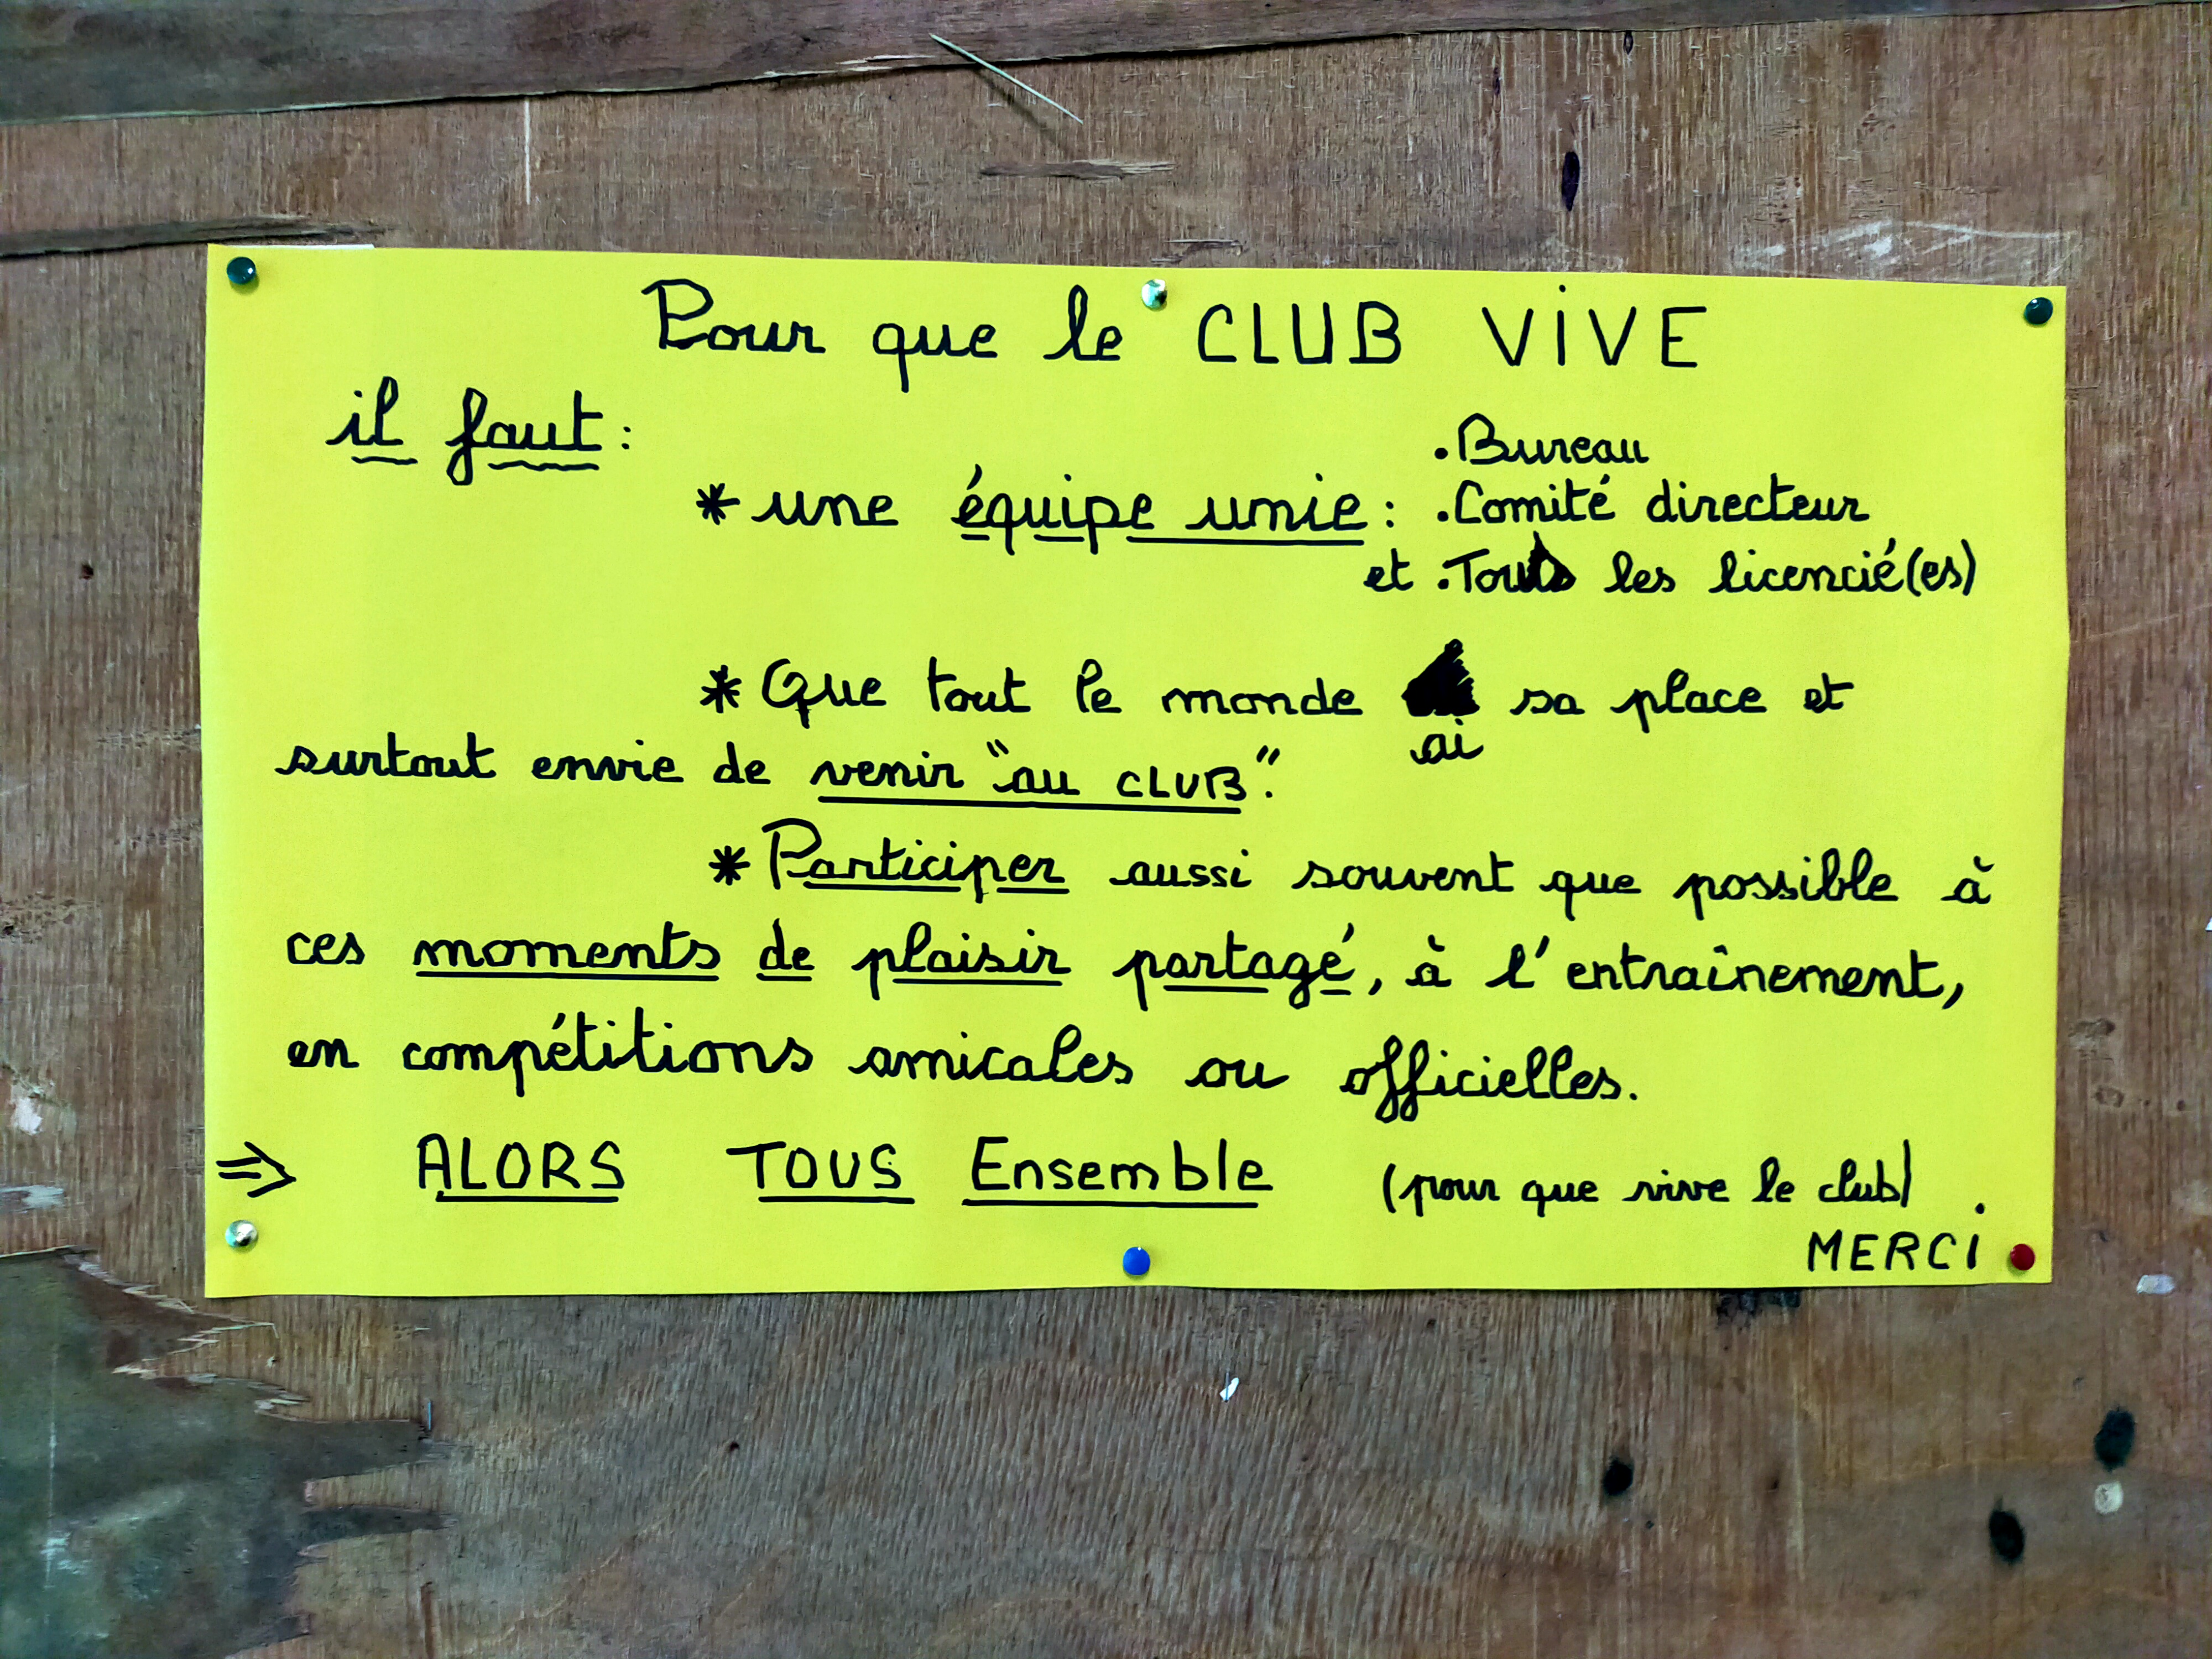 Pour que le CLUB ViVE
il faut :
.Bureau
* une équipe unie : .Comité directeur
et .Tous les licencié(es)
* Que tout le monde sa place et
ai
surtout envie de venir "au CLUB".
* Participer aussi souvent que possible à
ces moments de plaisir partagé, à l'entraînement,
en compétitions amicales ou officielles.
⇒ ALORS TOUS Ensemble (pour que vive le club)
MERCi